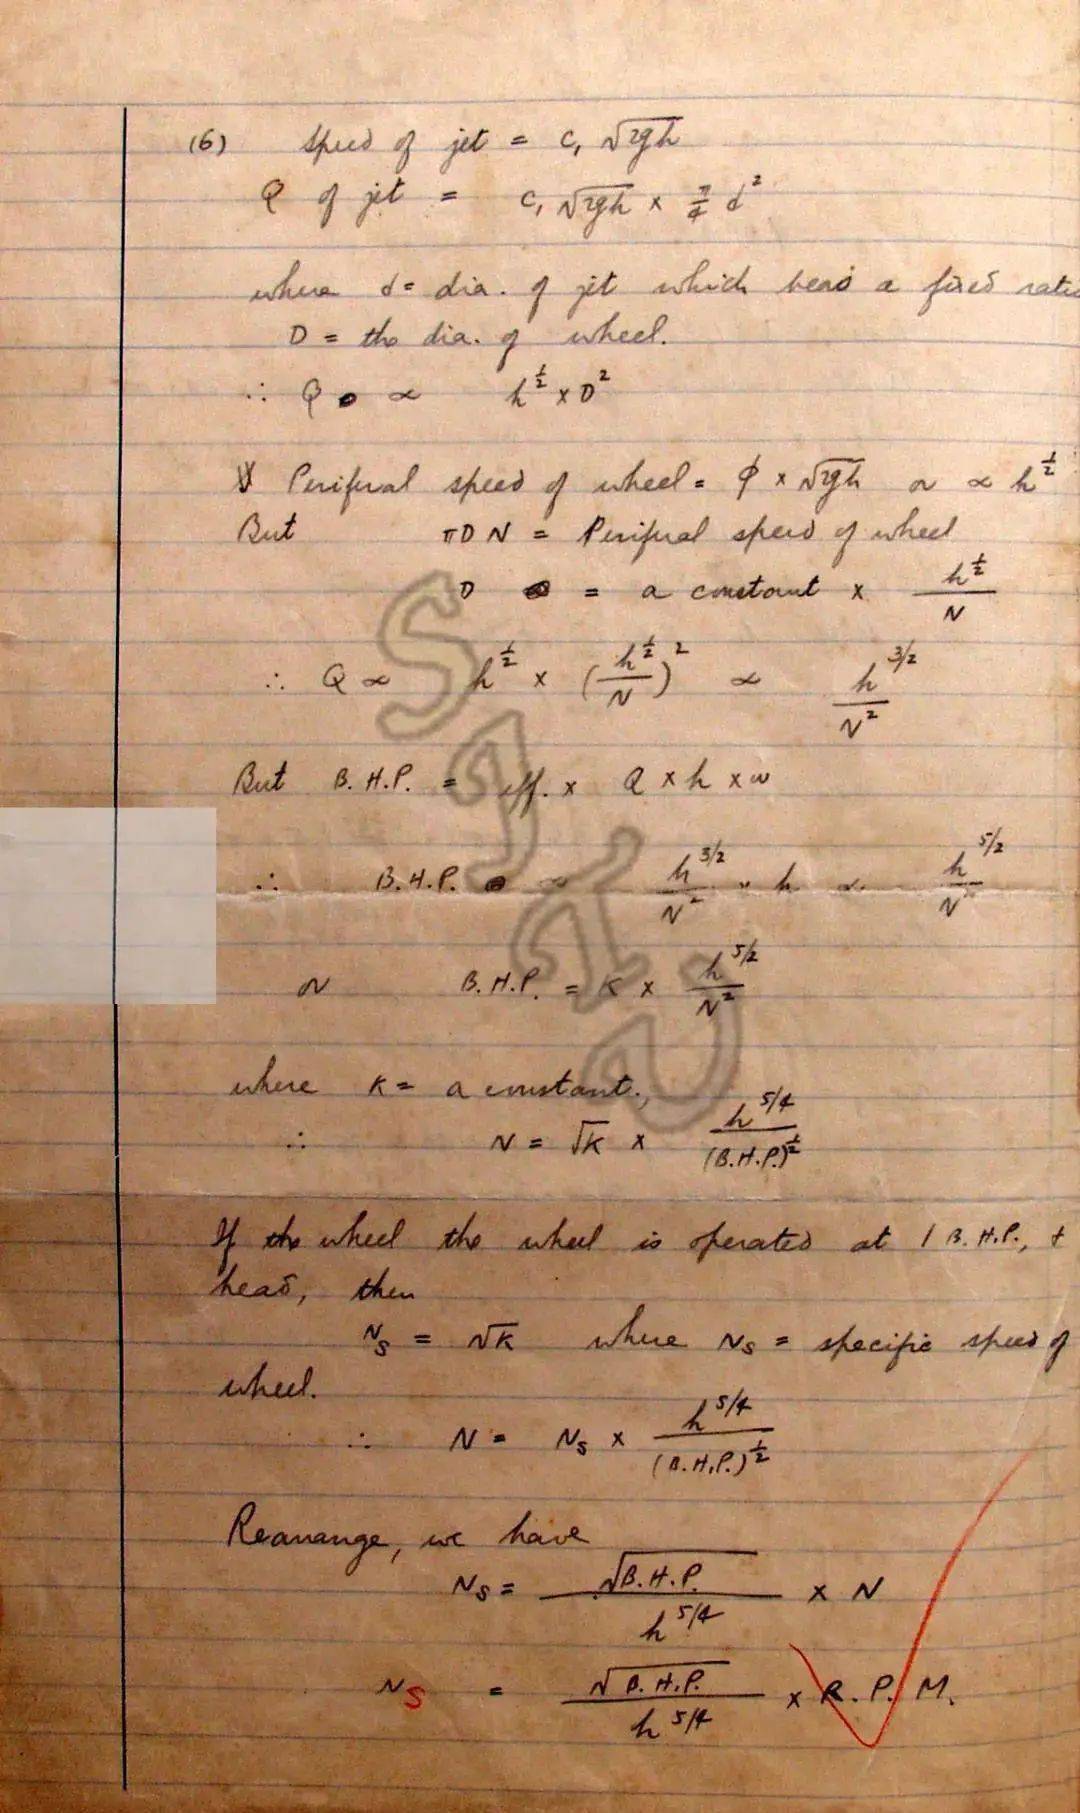 (6) Speed of jet = C₁ √2gh
Q of jet = C₁ √2gh × π/4 d²
where d = dia. of jet which bears a fixed ratio
D = the dia. of wheel.
∴ Q ∝ h^½ × D²
Periferal speed of wheel = φ × √2gh or ∝ h^½
But πDN = Periferal speed of wheel
D = a constant × h^½/N
∴ Q ∝ h^½ × (h^½/N)² ∝ h^3/2/N²
But B.H.P. = eff. × Q × h × w
∴ B.H.P. ∝ h^3/2/N² × h ∝ h^5/2/N²
or B.H.P. = K × h^5/2/N²
where K = a constant.,
∴ N = √K × h^5/4/(B.H.P.)^½
If the wheel the wheel is operated at 1 B.H.P., +
head, then
Ns = √K where Ns = specific speed of
wheel.
∴ N = Ns × h^5/4/(B.H.P.)^½
Rearange, we have
Ns = √B.H.P./h^5/4 × N
Ns = √B.H.P./h^5/4 × R.P.M.
SJTU